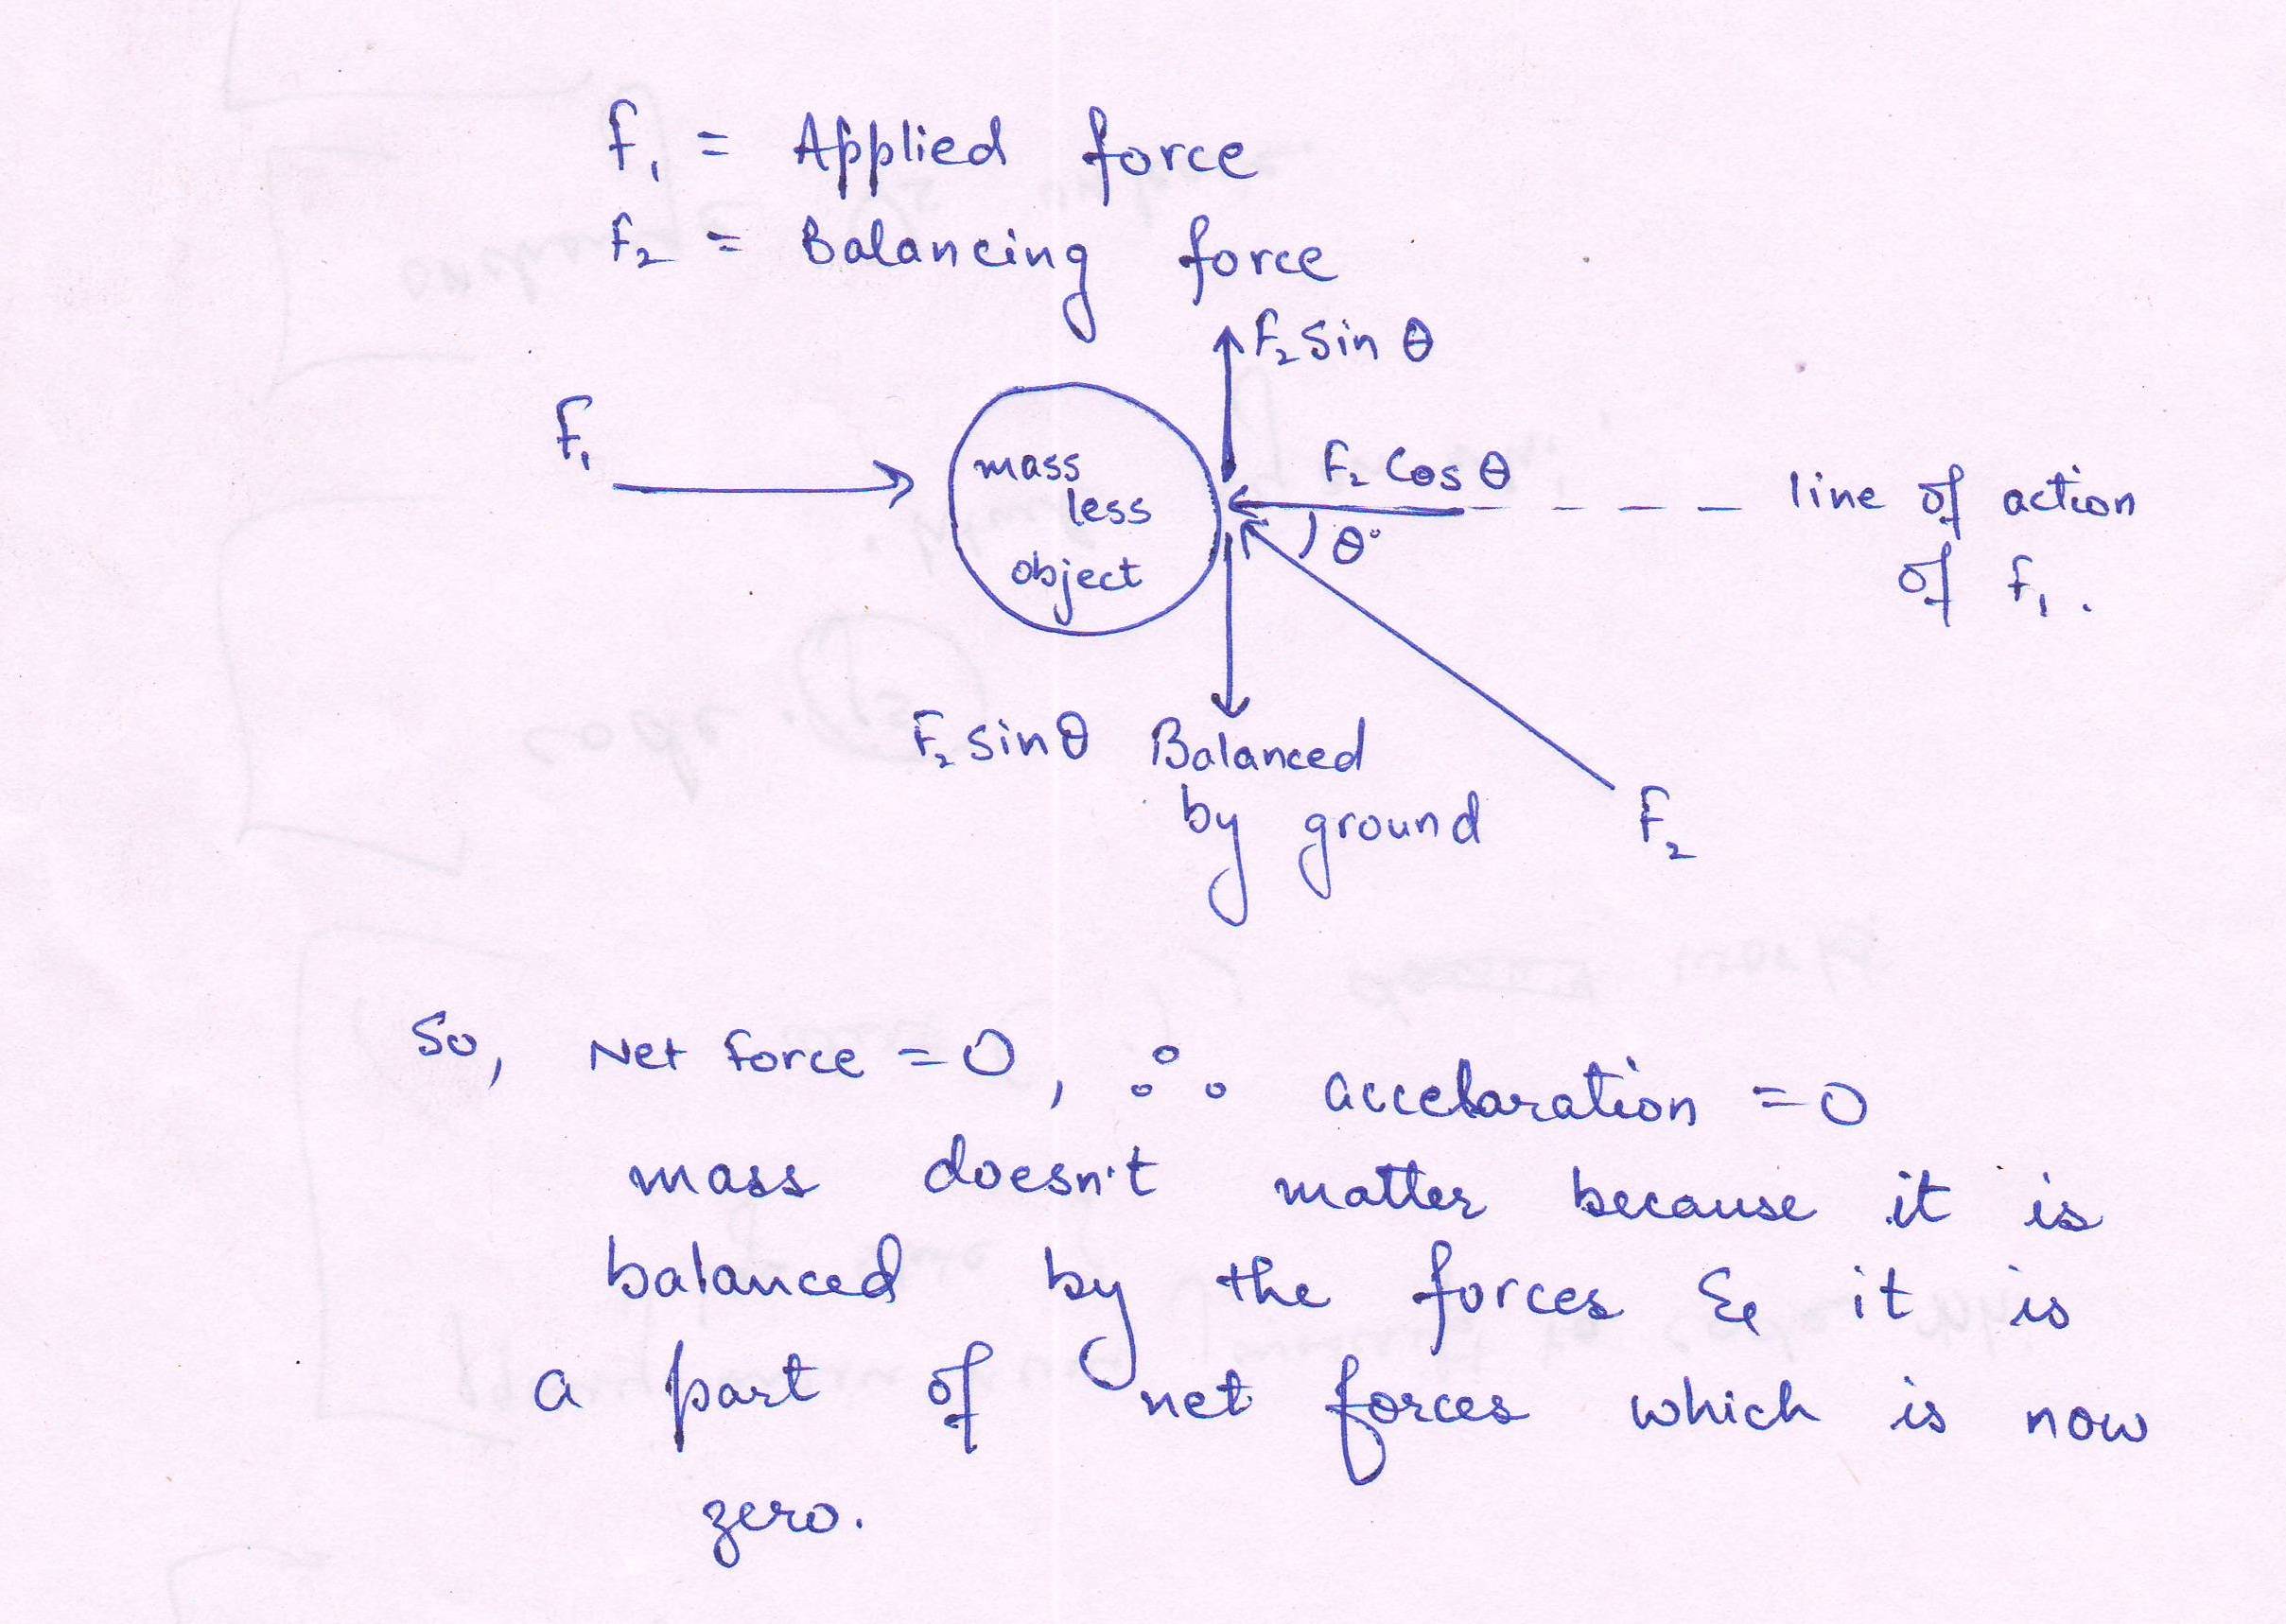 F₁ = Applied force
F₂ = Balancing force
F₂ Sin θ
F₁
mass
less
object
F₂ Cos θ
θ°
line of action
of F₁.
F₂ sinθ Balanced
by ground
F₂
So, Net force = 0, ∴ accelaration = 0
mass doesn't matter because it is
balanced by the forces & it is
a part of net forces which is now
zero.